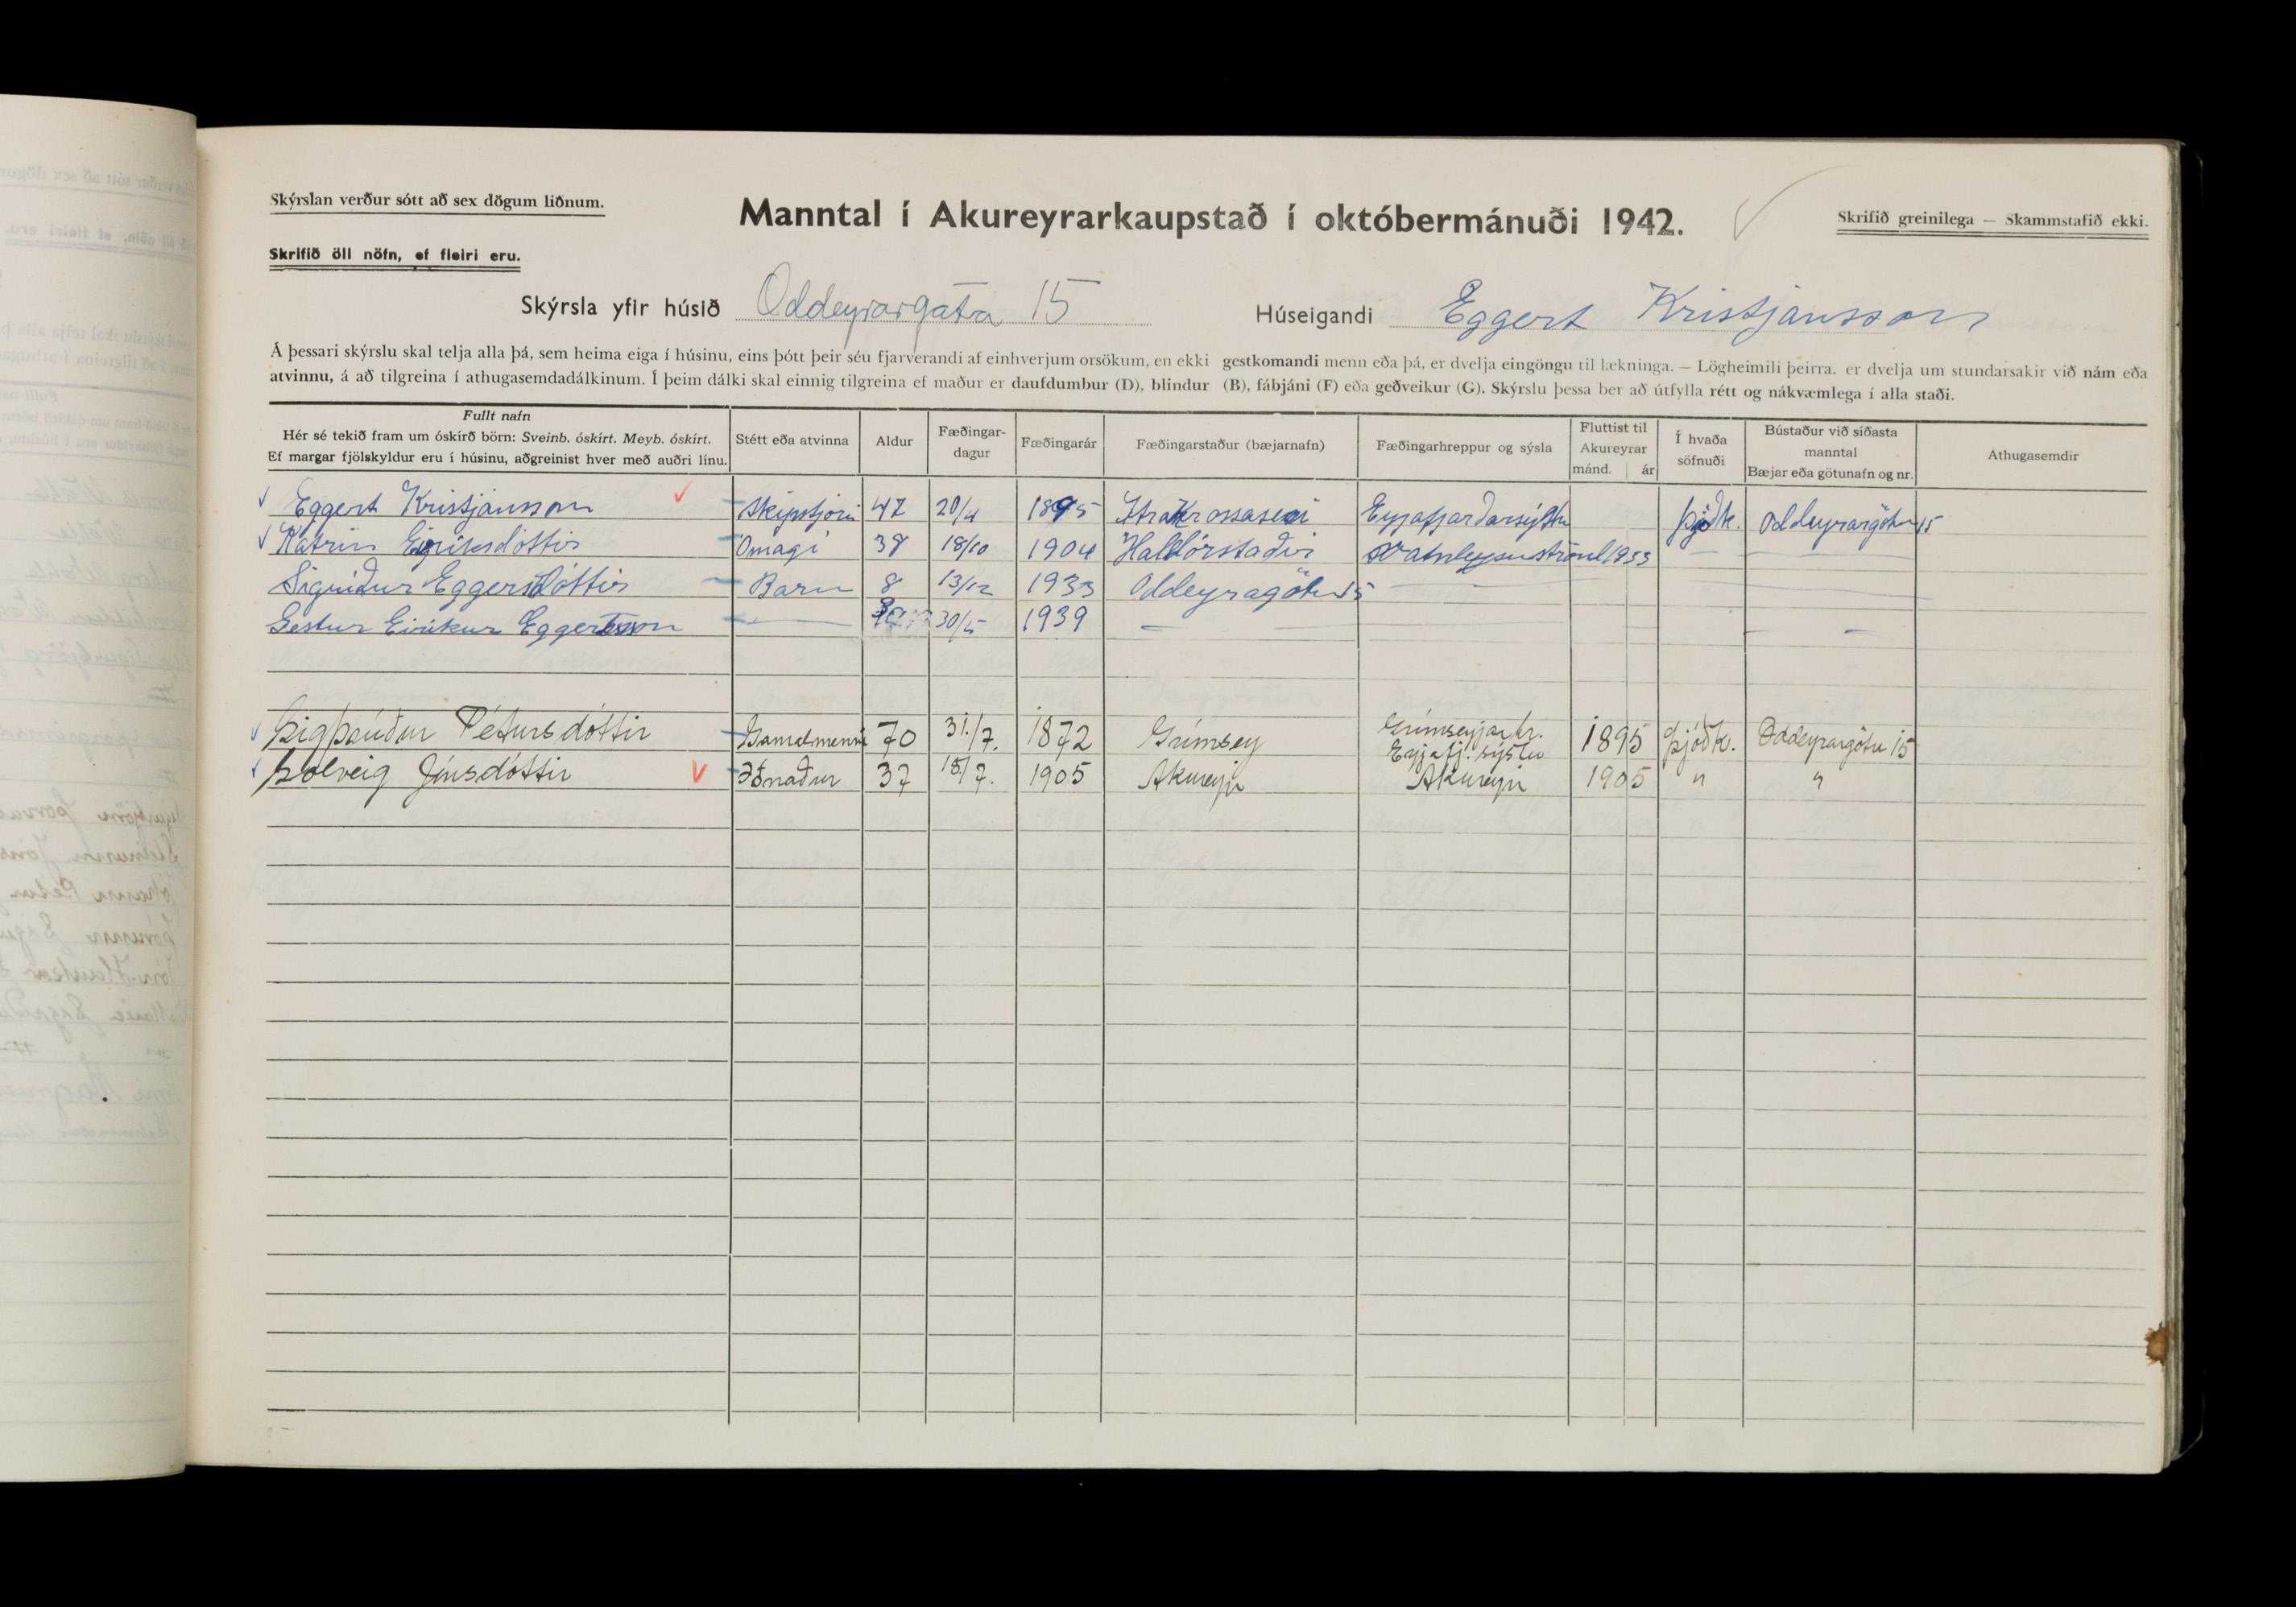 Skýrslan verður sótt að sex dögum liðnum.
Manntal í Akureyrarkaupstað í októbermánuði 1942.
Skrifið greinilega — Skammstafið ekki.
Skrifið öll nöfn, ef fleiri eru.
Skýrsla yfir húsið Oddeyrargata 15 Húseigandi Eggert Kristjánsson
Á þessari skýrslu skal telja alla þá, sem heima eiga í húsinu, eins þótt þeir séu fjarverandi af einhverjum orsökum, en ekki gestkomandi menn eða þá, er dvelja eingöngu til lækninga. — Lögheimili þeirra, er dvelja um stundarsakir við nám eða
atvinnu, á að tilgreina í athugasemdadálkinum. Í þeim dálki skal einnig tilgreina ef maður er daufdumbur (D), blindur (B), fábjáni (F) eða geðveikur (G). Skýrslu þessa ber að útfylla rétt og nákvæmlega í alla staði.
Fullt nafn
Hér sé tekið fram um óskírð börn: Sveinb. óskírt. Meyb. óskírt.
Ef margar fjölskyldur eru í húsinu, aðgreinist hver með auðri línu.
Stétt eða atvinna
Aldur
Fæðingar-
dagur
Fæðingarár
Fæðingarstaður (bæjarnafn)
Fæðingarhreppur og sýsla
Fluttist til
Akureyrar
mánd. ár
Í hvaða
söfnuði
Bústaður við síðasta
manntal
Bæjar eða götunafn og nr.
Athugasemdir
Eggert Kristjánsson Skipstjóri 47 20/4 1895 Eyjafjarðarsýslu Þjóðk. Oddeyrargötu 15
Katrin Eiríksdóttir Ómagi 38 18/10 1904 Halldórstaðir Vatnleysuströnd 1933 — —
Sigríður Eggertsdóttir Barn 8 13/12 1933 Oddeyragötu 15 —
Gestur Eiríkur Eggertsson — 30/5 1939 — — —
Sigþrúður Pétursdóttir Gamalmenni 70 31./7. 1872 Grímsey Grímseyjarhr. Eyjafj.sýslu 1895 Þjóðk. Oddeyrargötu 15
Sólveig Jónsdóttir Iðnaður 37 15/7. 1905 Akureyri Akureyri 1905 " "